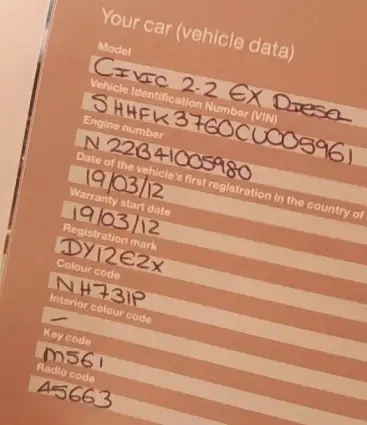 Your car (vehicle data)
Model
CIVIC 2.2 EX DIESEL
Vehicle Identification Number (VIN)
SHHFK3760CU005961
Engine number
N22B41005980
Date of the vehicle's first registration in the country of
19/03/12
Warranty start date
19/03/12
Registration mark
DY12EZX
Colour code
NH731P
Interior colour code
–
Key code
M561
Radio code
A5663